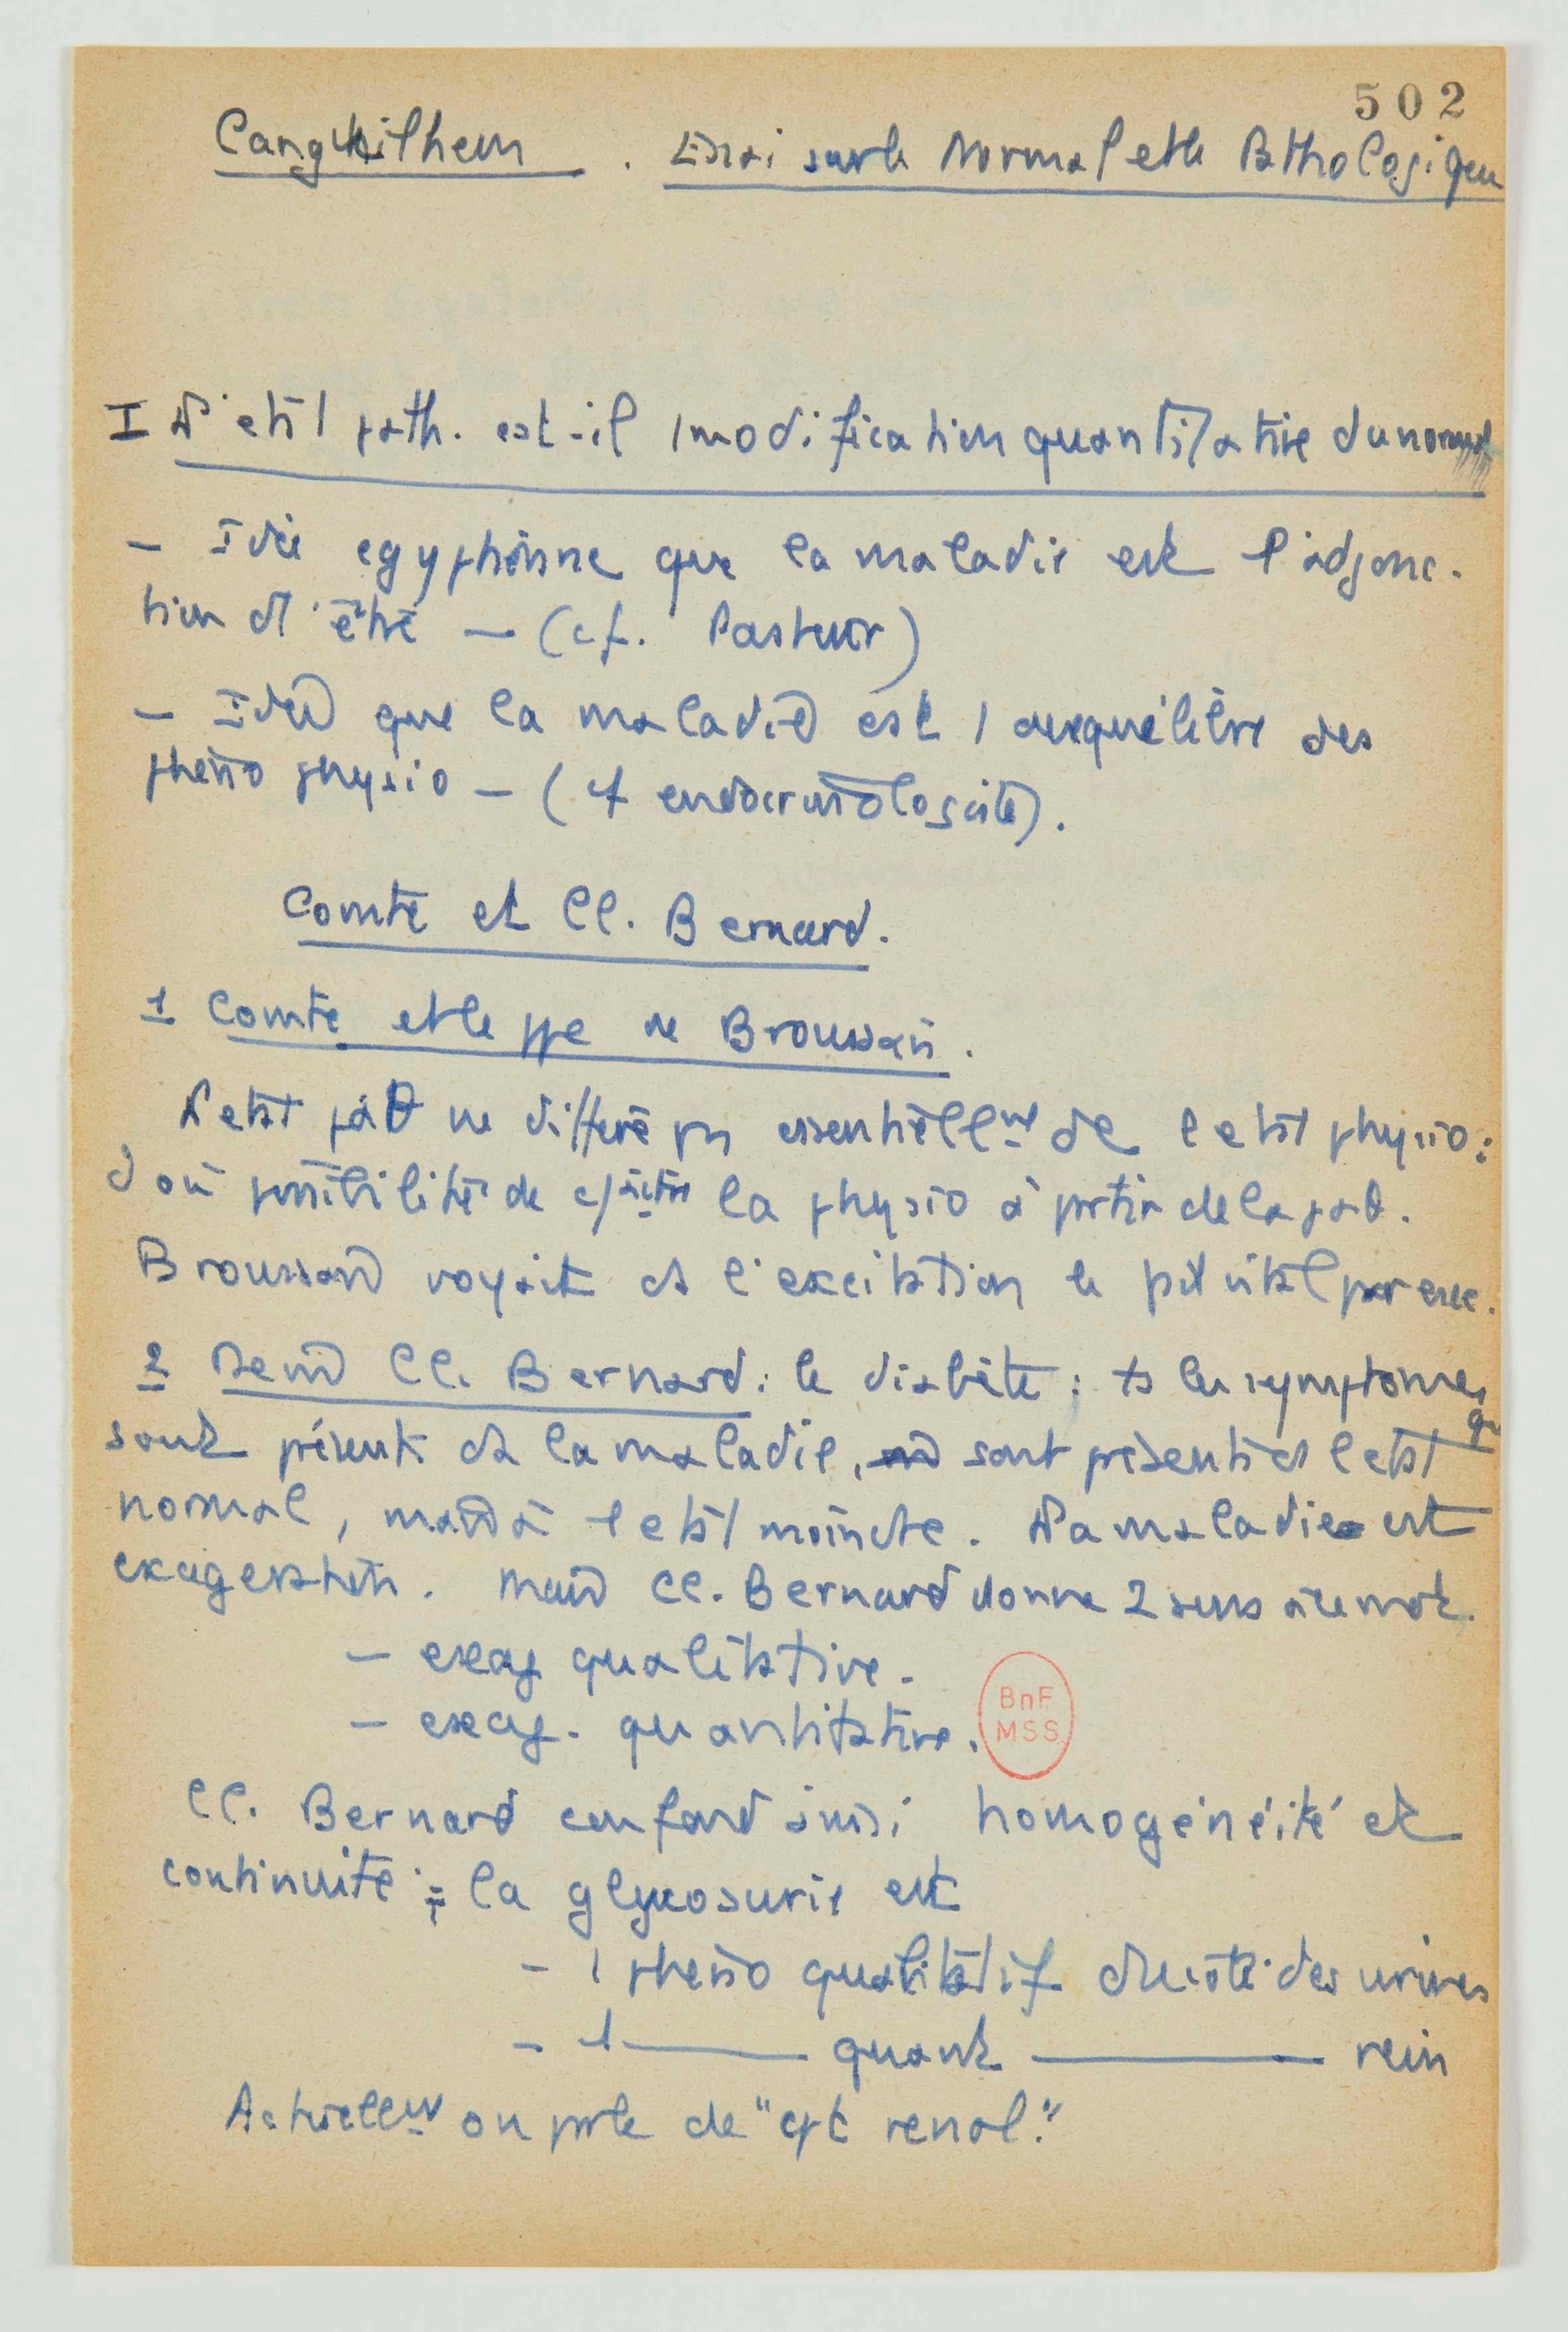 502
Canguilhem . Essai sur le Normal et le Pathologique
I L'etat path. est-il 1 modification quantitative du normal
— Idée egyptienne que la maladie est l'adjonc-
tion d'être — (cf. Pasteur)
— Idée que la maladie est 1 desequilibre des
pheno physio — (cf endocrinologiste).
Comte et Cl. Bernard.
1 Comte et le ppe de Broussais.
L'etat path ne differe pas essentiellemt de l'etat physio :
d'où possibilité de la physio à partir de la path.
Broussais voyait ds l'excitation le fait vital par exc.
2 Cl. Bernard : le diabète ; ts les symptomes qu
sont présents ds la maladie, sont présents ds l'etat
normal, mais à l'etat moindre. La maladie est
exageration. Mais Cl. Bernard donne 2 sens à ce mot.
— exag qualitative.
— exag. quantitative.
BnF
MSS
Cl. Bernard confond ainsi homogénéité et
continuité : la glycosurie est
- 1 pheno qualitatif du côté des urines
- 1 —— quant —— rein
Actuellemt on parle de "cpt renal."